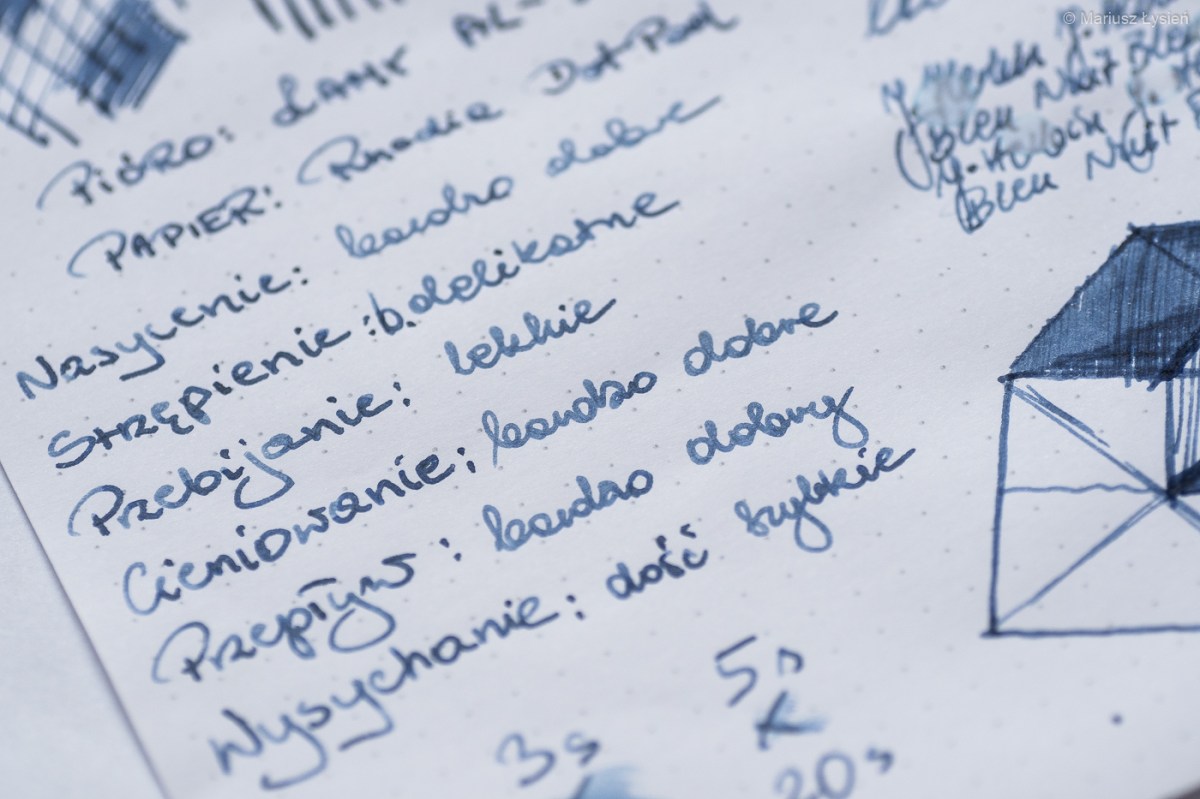 © Mariusz Łysień
Pióro: LAMY AL-
PAPIER: Rhodia Dot Pad
Nasycenie: bardzo dobre
Strzępienie: b. delikatne
Przebijanie: lekkie
Cieniowanie: bardzo dobre
Przepływ: bardzo dobry
Wysychanie: dość szybkie
3s
5s
20s
J. Herbin
Bleu Nuit Bleu
J. Herbin
Bleu Nuit